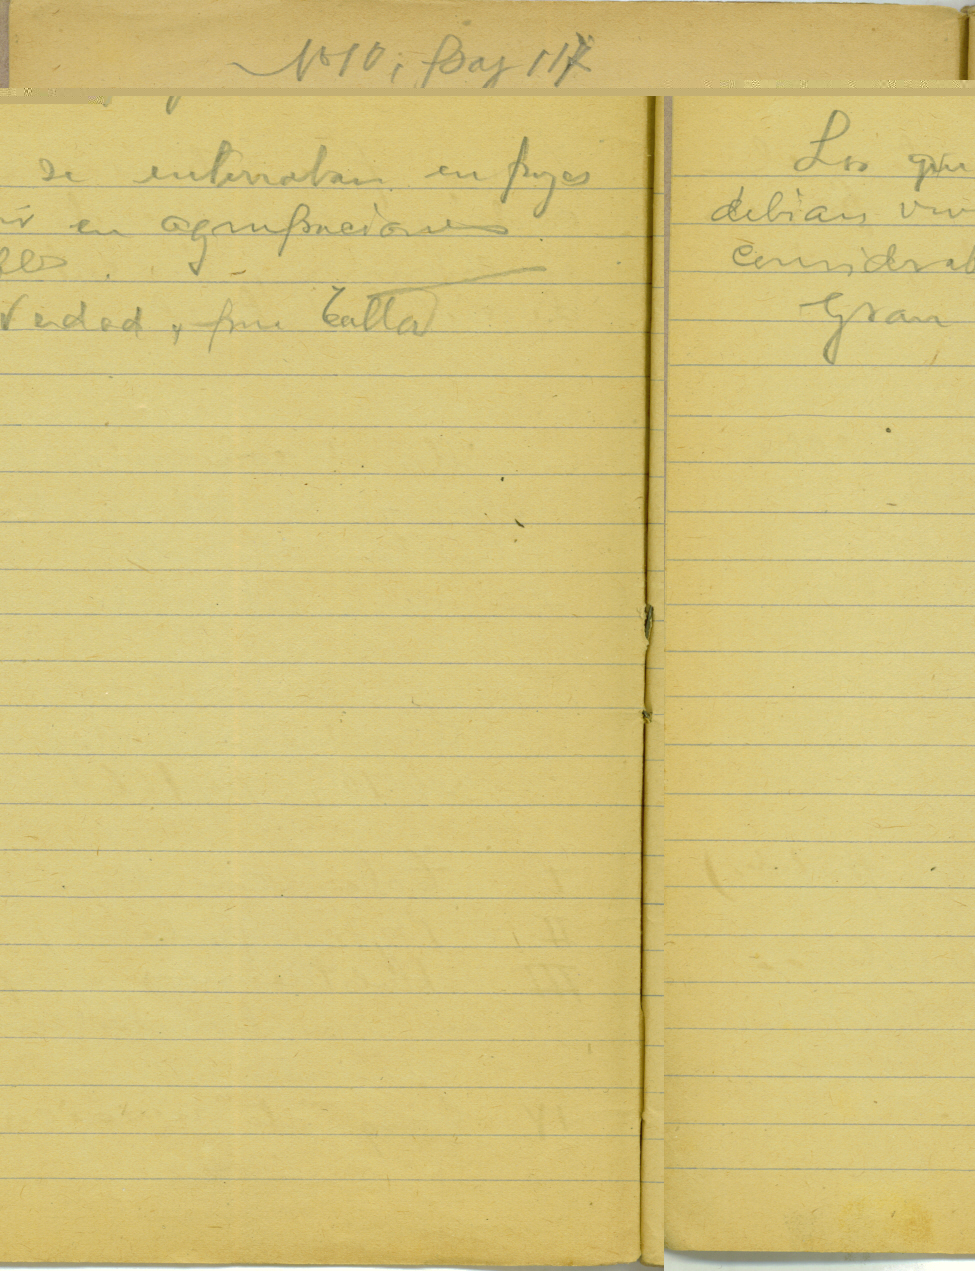 Nº 10, pag 117
se enterraban en
en agrupaciones
Verdad, pue Talla
Los que
debian viv
considerab
Gran